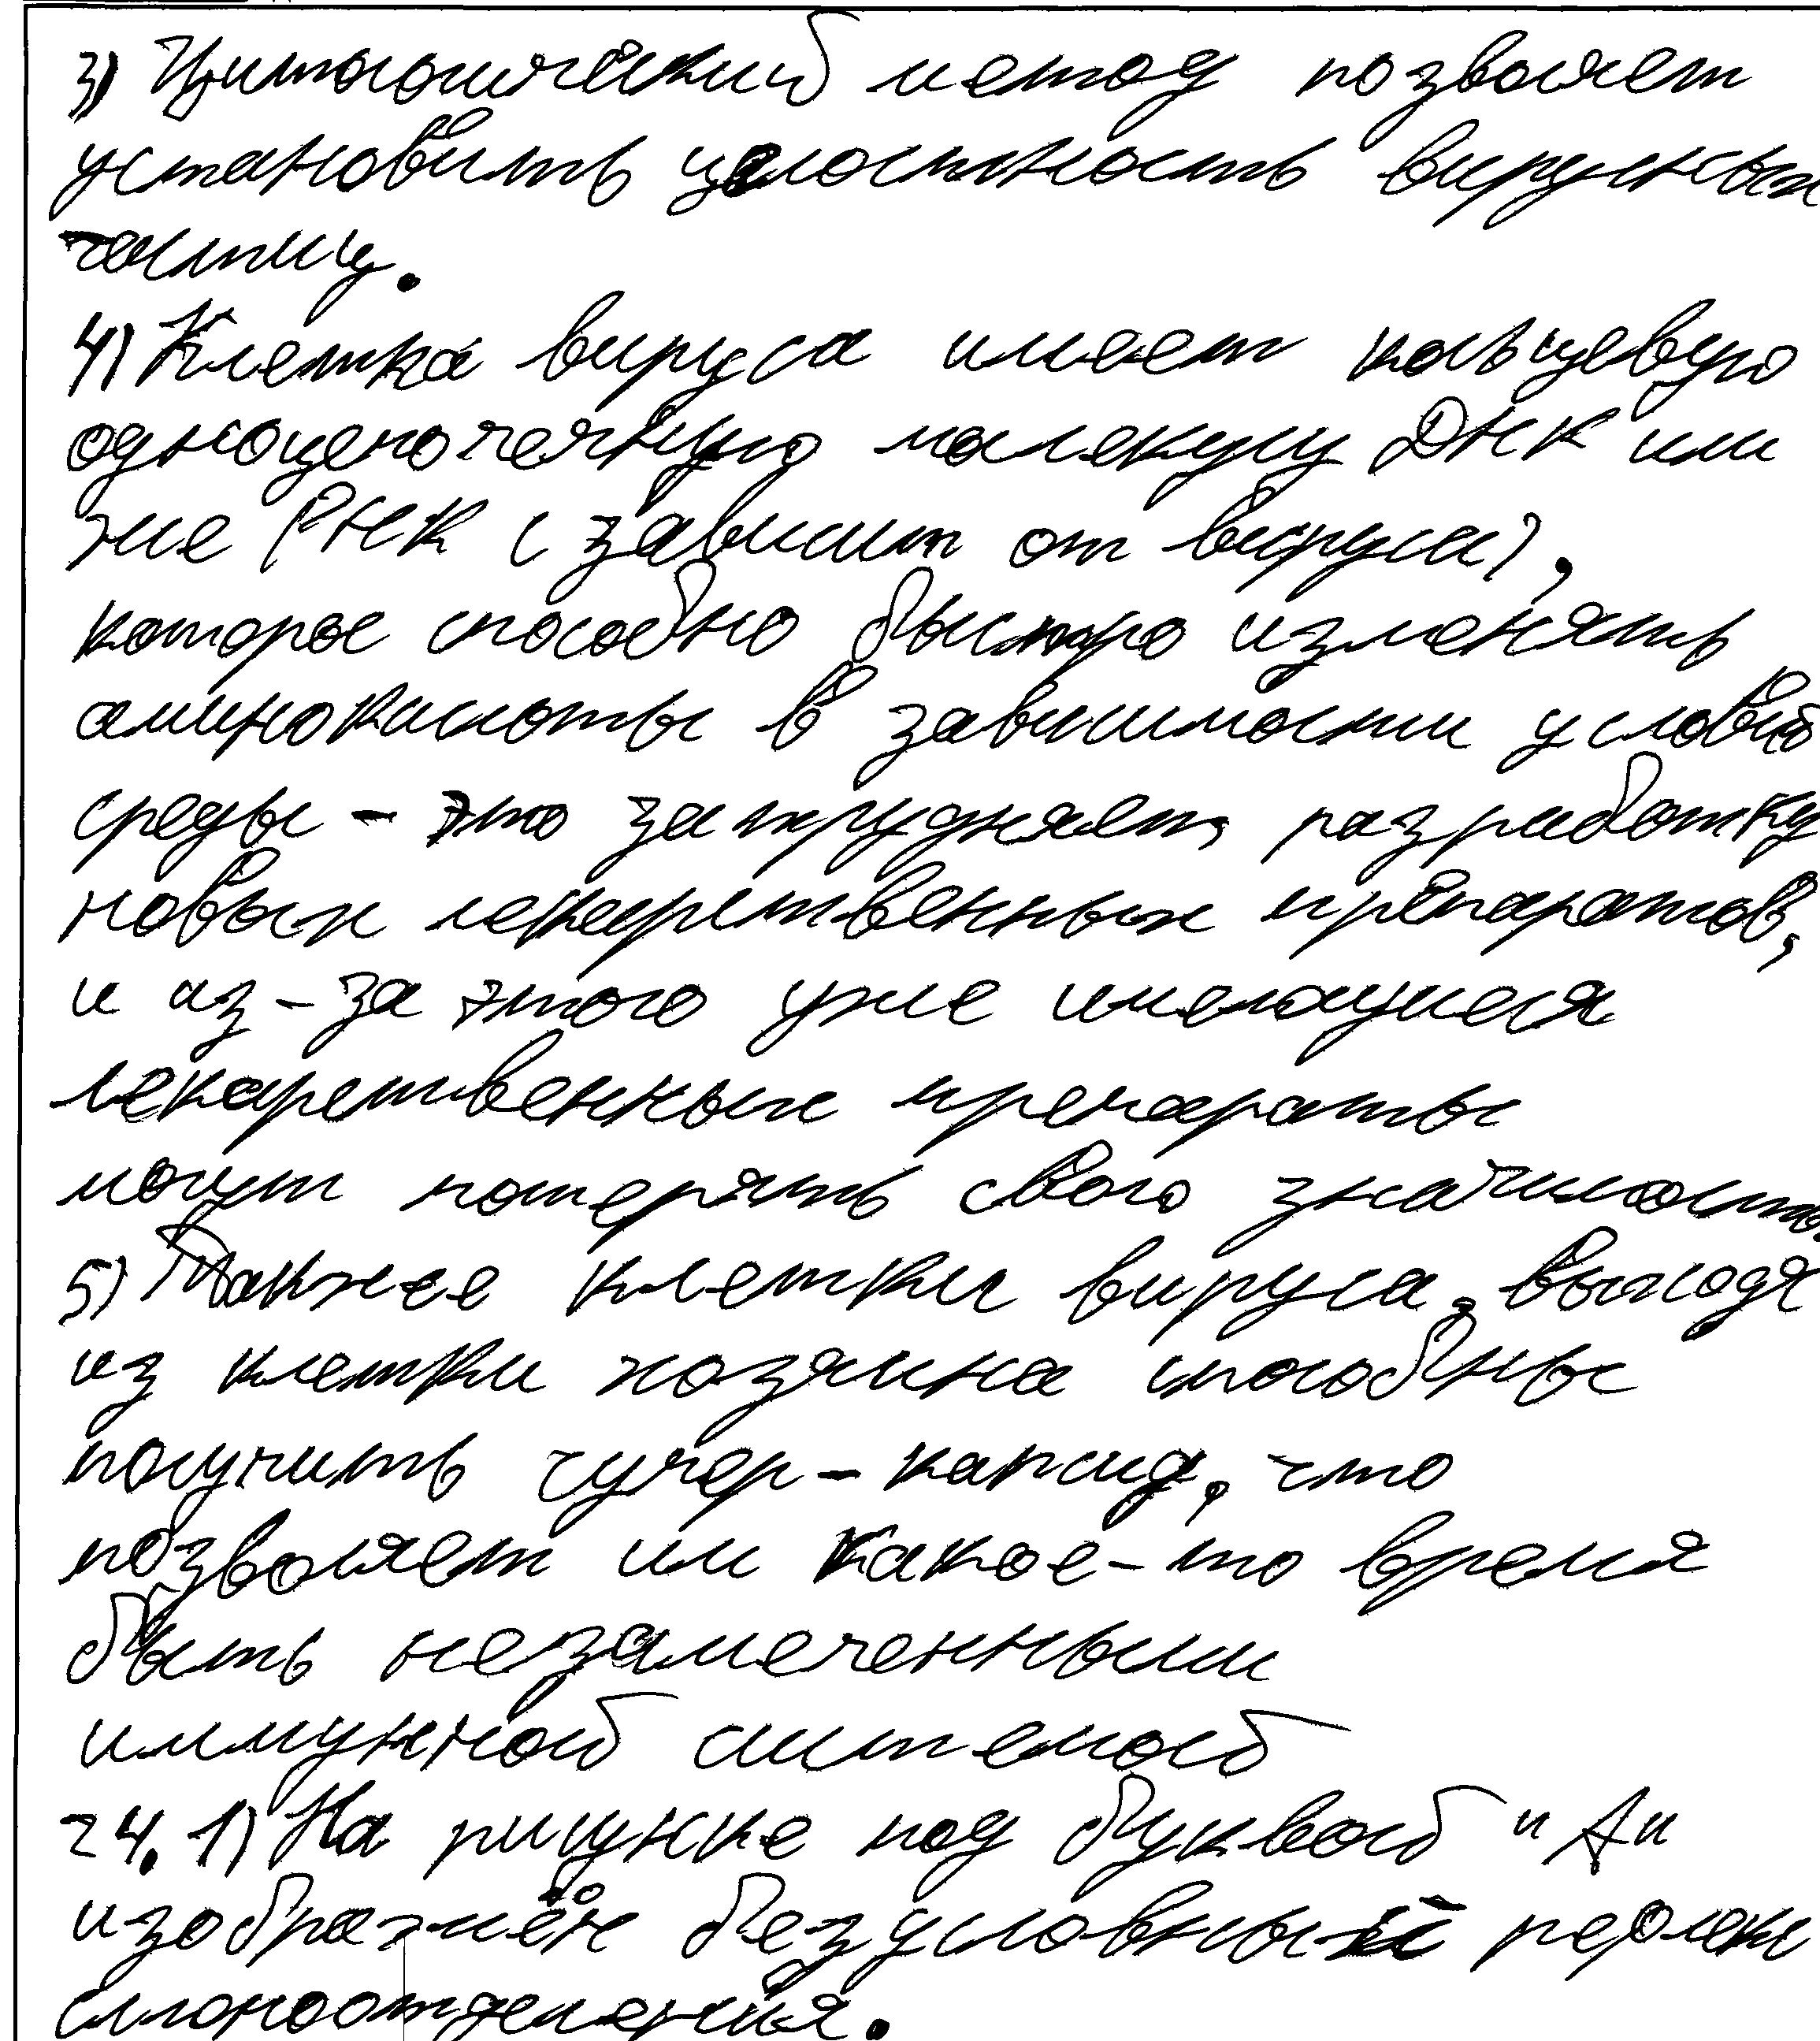 3) Цитологический метод позволяет
установить целостность вирусных
частиц.
4) Клетка вируса имеет кольцевую
одноцепочечную молекулу ДНК или
же РНК (зависит от вируса),
которое способно быстро изменять
аминокислоты в зависимости условий
среды - это затрудняет, разработку
новых лекарственных препаратов,
и из-за этого уже имеющиеся
лекарственных препараты
могут потерять свою значимость.
5) Также клетки вируса, выходя
из клетки хозяина способны
получить супер-капсид, что
позволяет им какое-то время
быть незамеченными
иммунной системой
24. 1) На рисунке под буквой "А"
изображён безусловный рефлекс
слюноотделения.